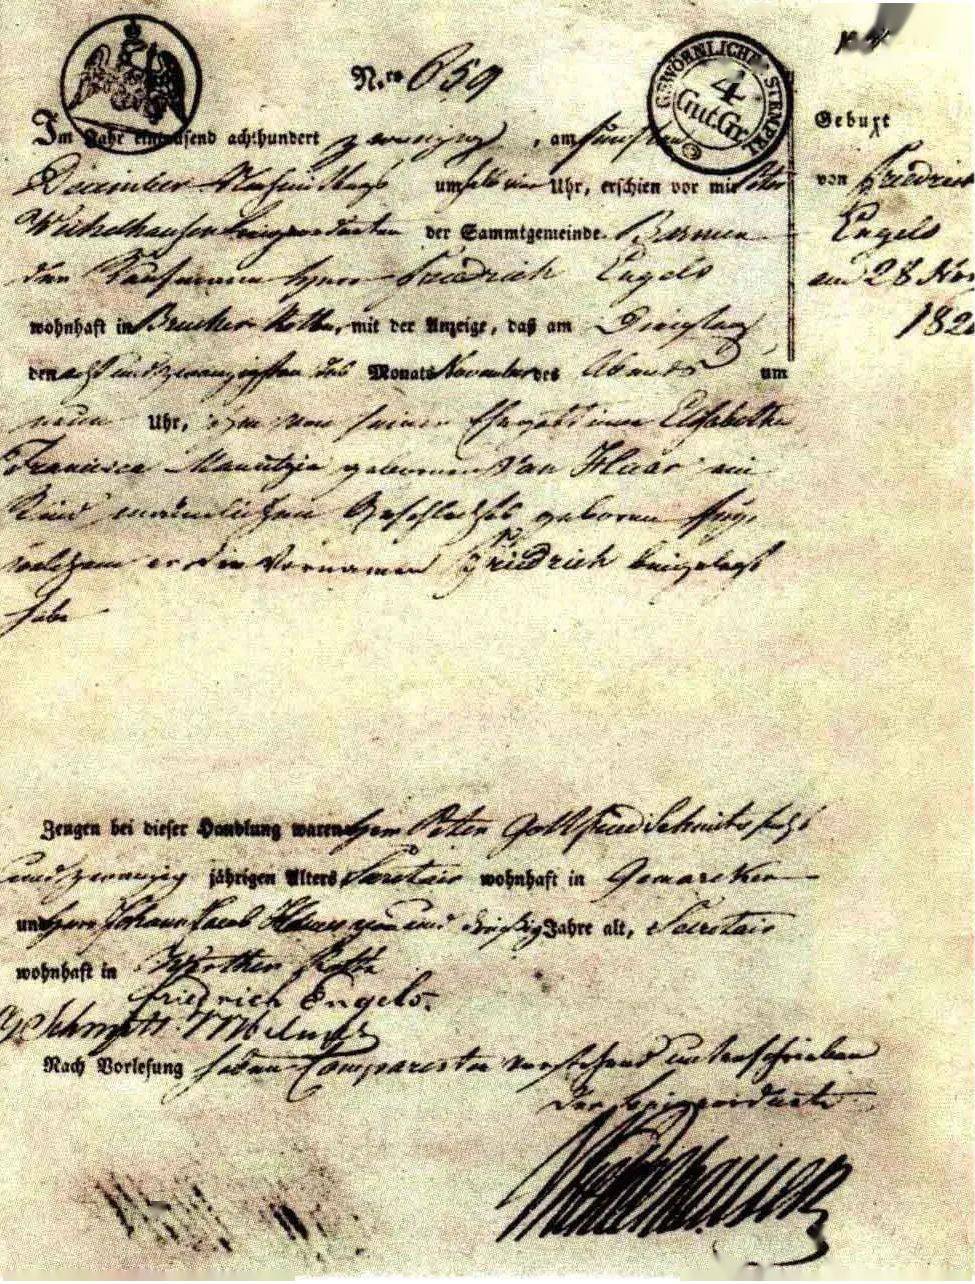 N.ro 659
GEWÖHNLICHER STEMPEL
4
Gut.Gr.
Geburt
von Friedrich
Engels
am 28 Nov
182
Im Jahr eintausend achthundert zwanzig, am fünften
December Nachmittags um halb vier Uhr, erschien vor mir Peter
Wichelhausen Beigeordneten der Sammtgemeinde Barmen
der Kaufmann Herr Friedrich Engels
wohnhaft in Brucher Rotte, mit der Anzeige, daß am Dienstag
den acht und zwanzigsten des Monats November des Abends um
neun Uhr, ihm von seiner Ehegattinn Elisabetha
Francisca Mauritzia gebornen van Haar ein
Kind männlichen Geschlechts geboren sey,
welchem er den Vornamen Friedrich beigelegt
habe
Zeugen bei dieser Handlung waren Herr Peter Gottfried Schmits sechs
und zwanzig jährigen Alters Secretair wohnhaft in Gemarcker
und Herr Johann Jacob und dreißig Jahre alt, Secretair
wohnhaft in Rotte
Friedrich Engels.
Nach Vorlesung haben Comparenten vorstehend unterschrieben
Der Beigeordnete
Wichelhausen